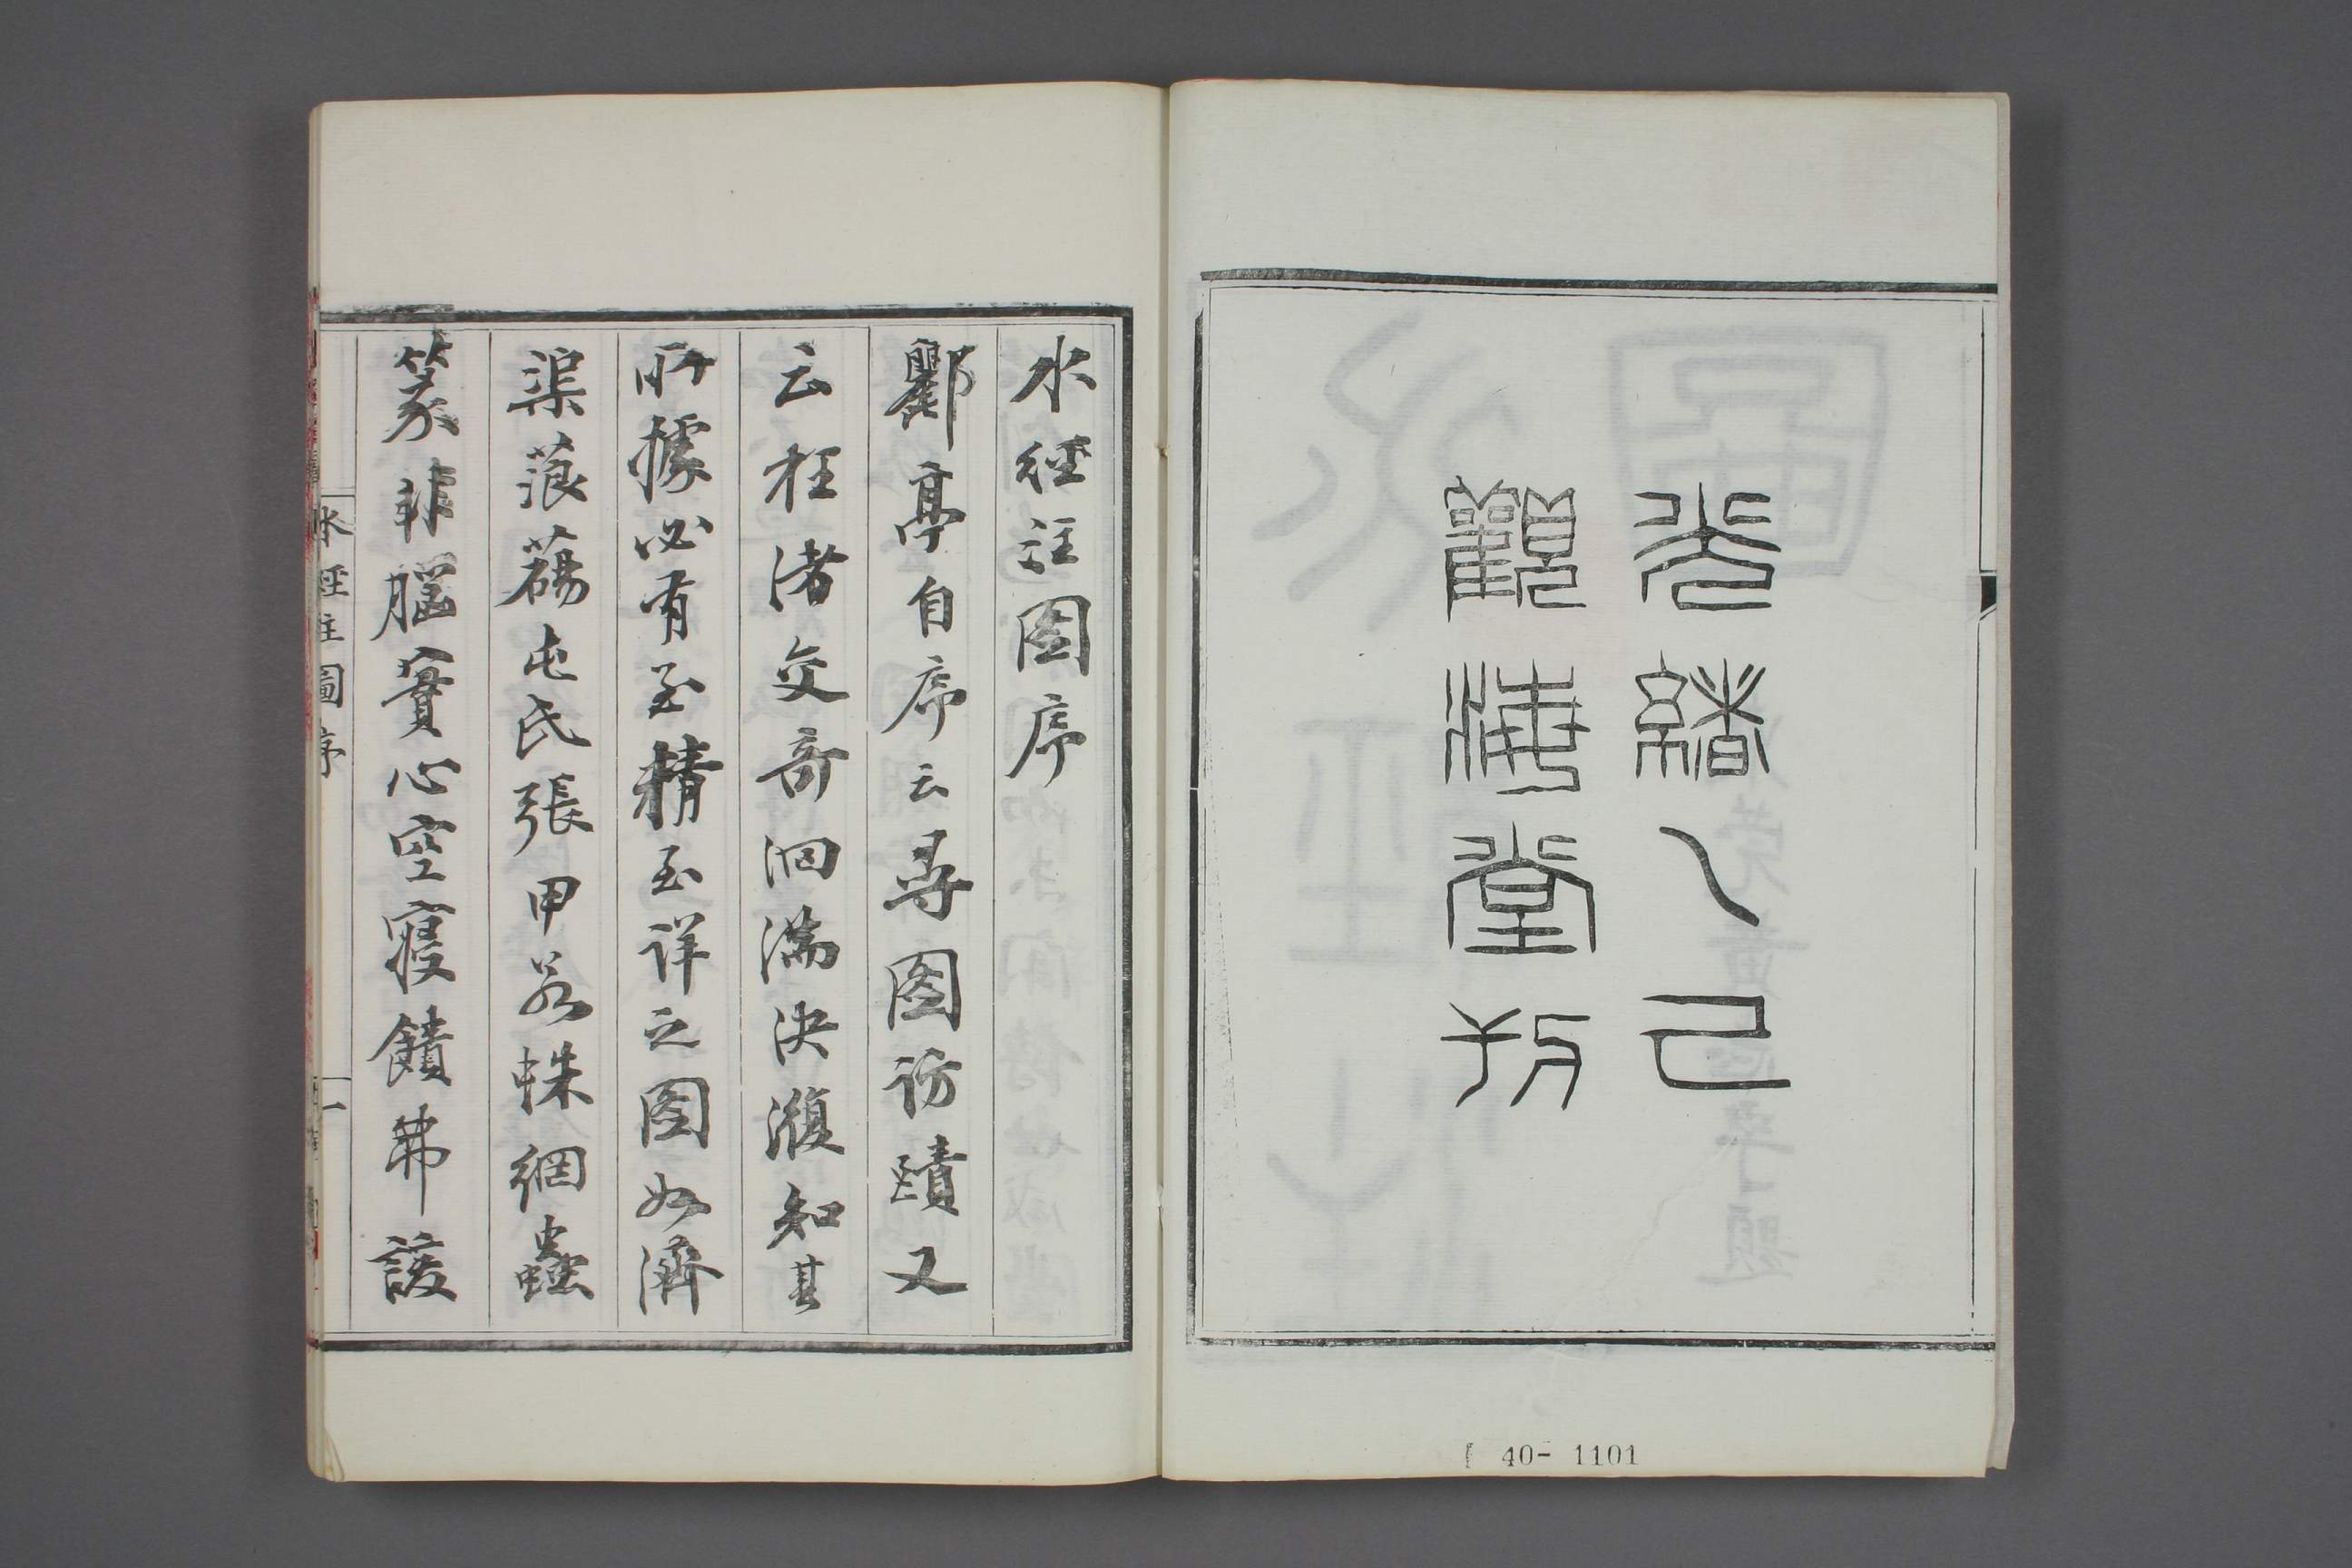 光緒乙巳
觀海堂刊
40- 1101
水經注圖序
酈亭自序云尋圖訪賾又
云枉渚交奇洄湍決澓知其
所據必有至精至詳之圖如濟
渠蒗蕩屯氏張甲若蛛網蟲
篆非腦實心空寢饋弗諼
水經注圖序
一